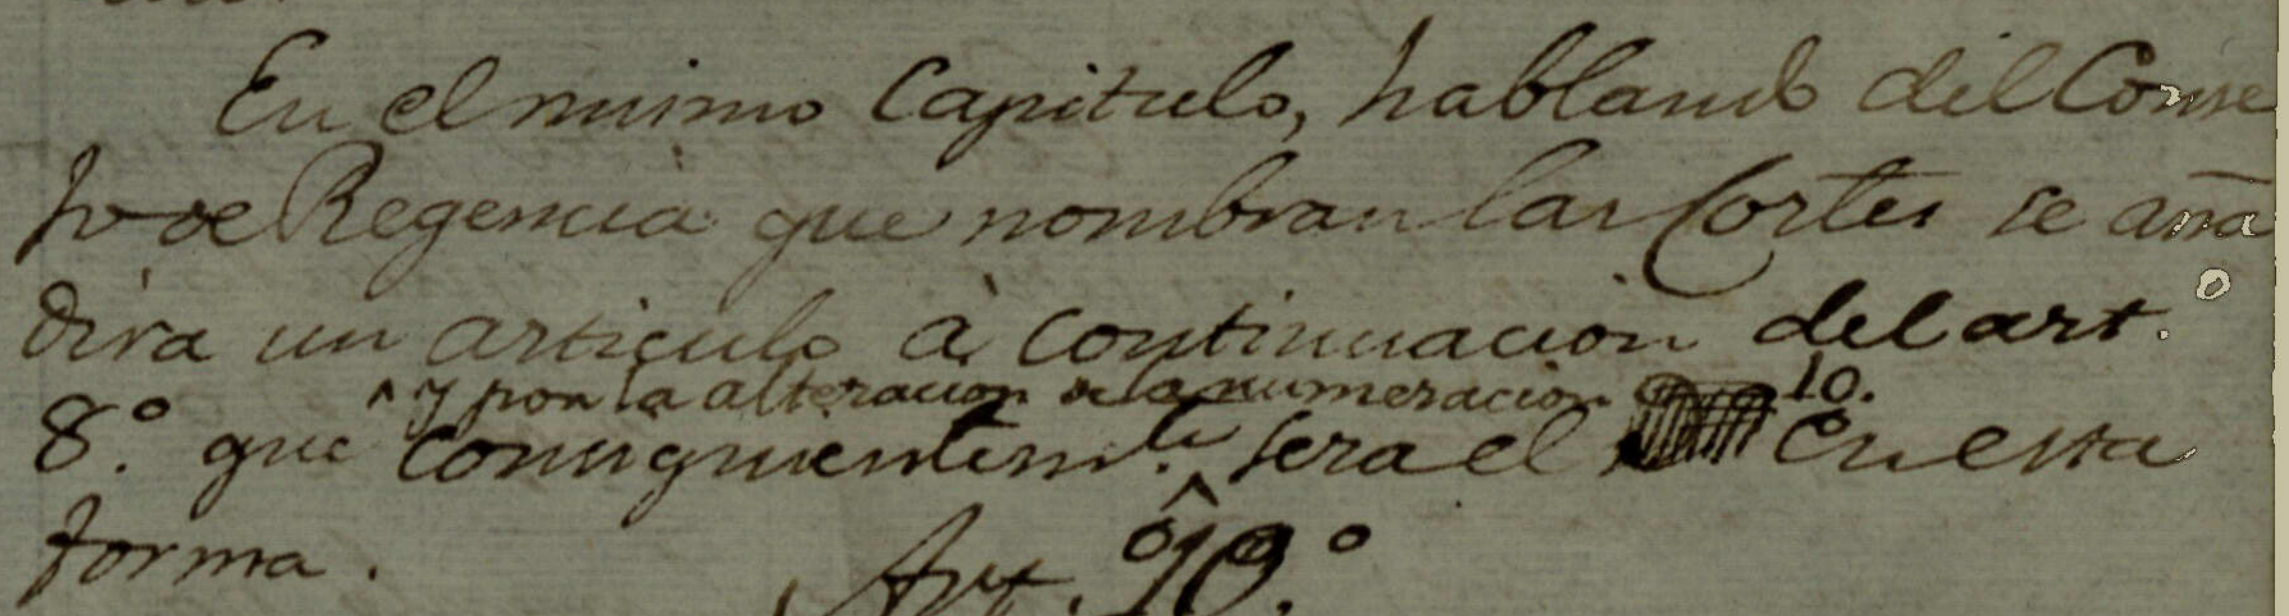 En el mismo Capitulo, hablando del Conse
jo de Regencia que nombran las Cortes se aña
dirá un articulo à continuacion del art.º
^ y por la alteracion de la numeracion 10.
8.º que consiguientem.te sera el en esta
forma.
Art. 10.º